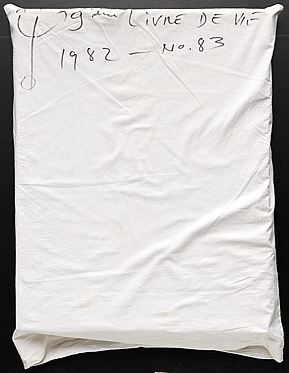 79 ème LIVRE DE VIE
1982 - No. 83